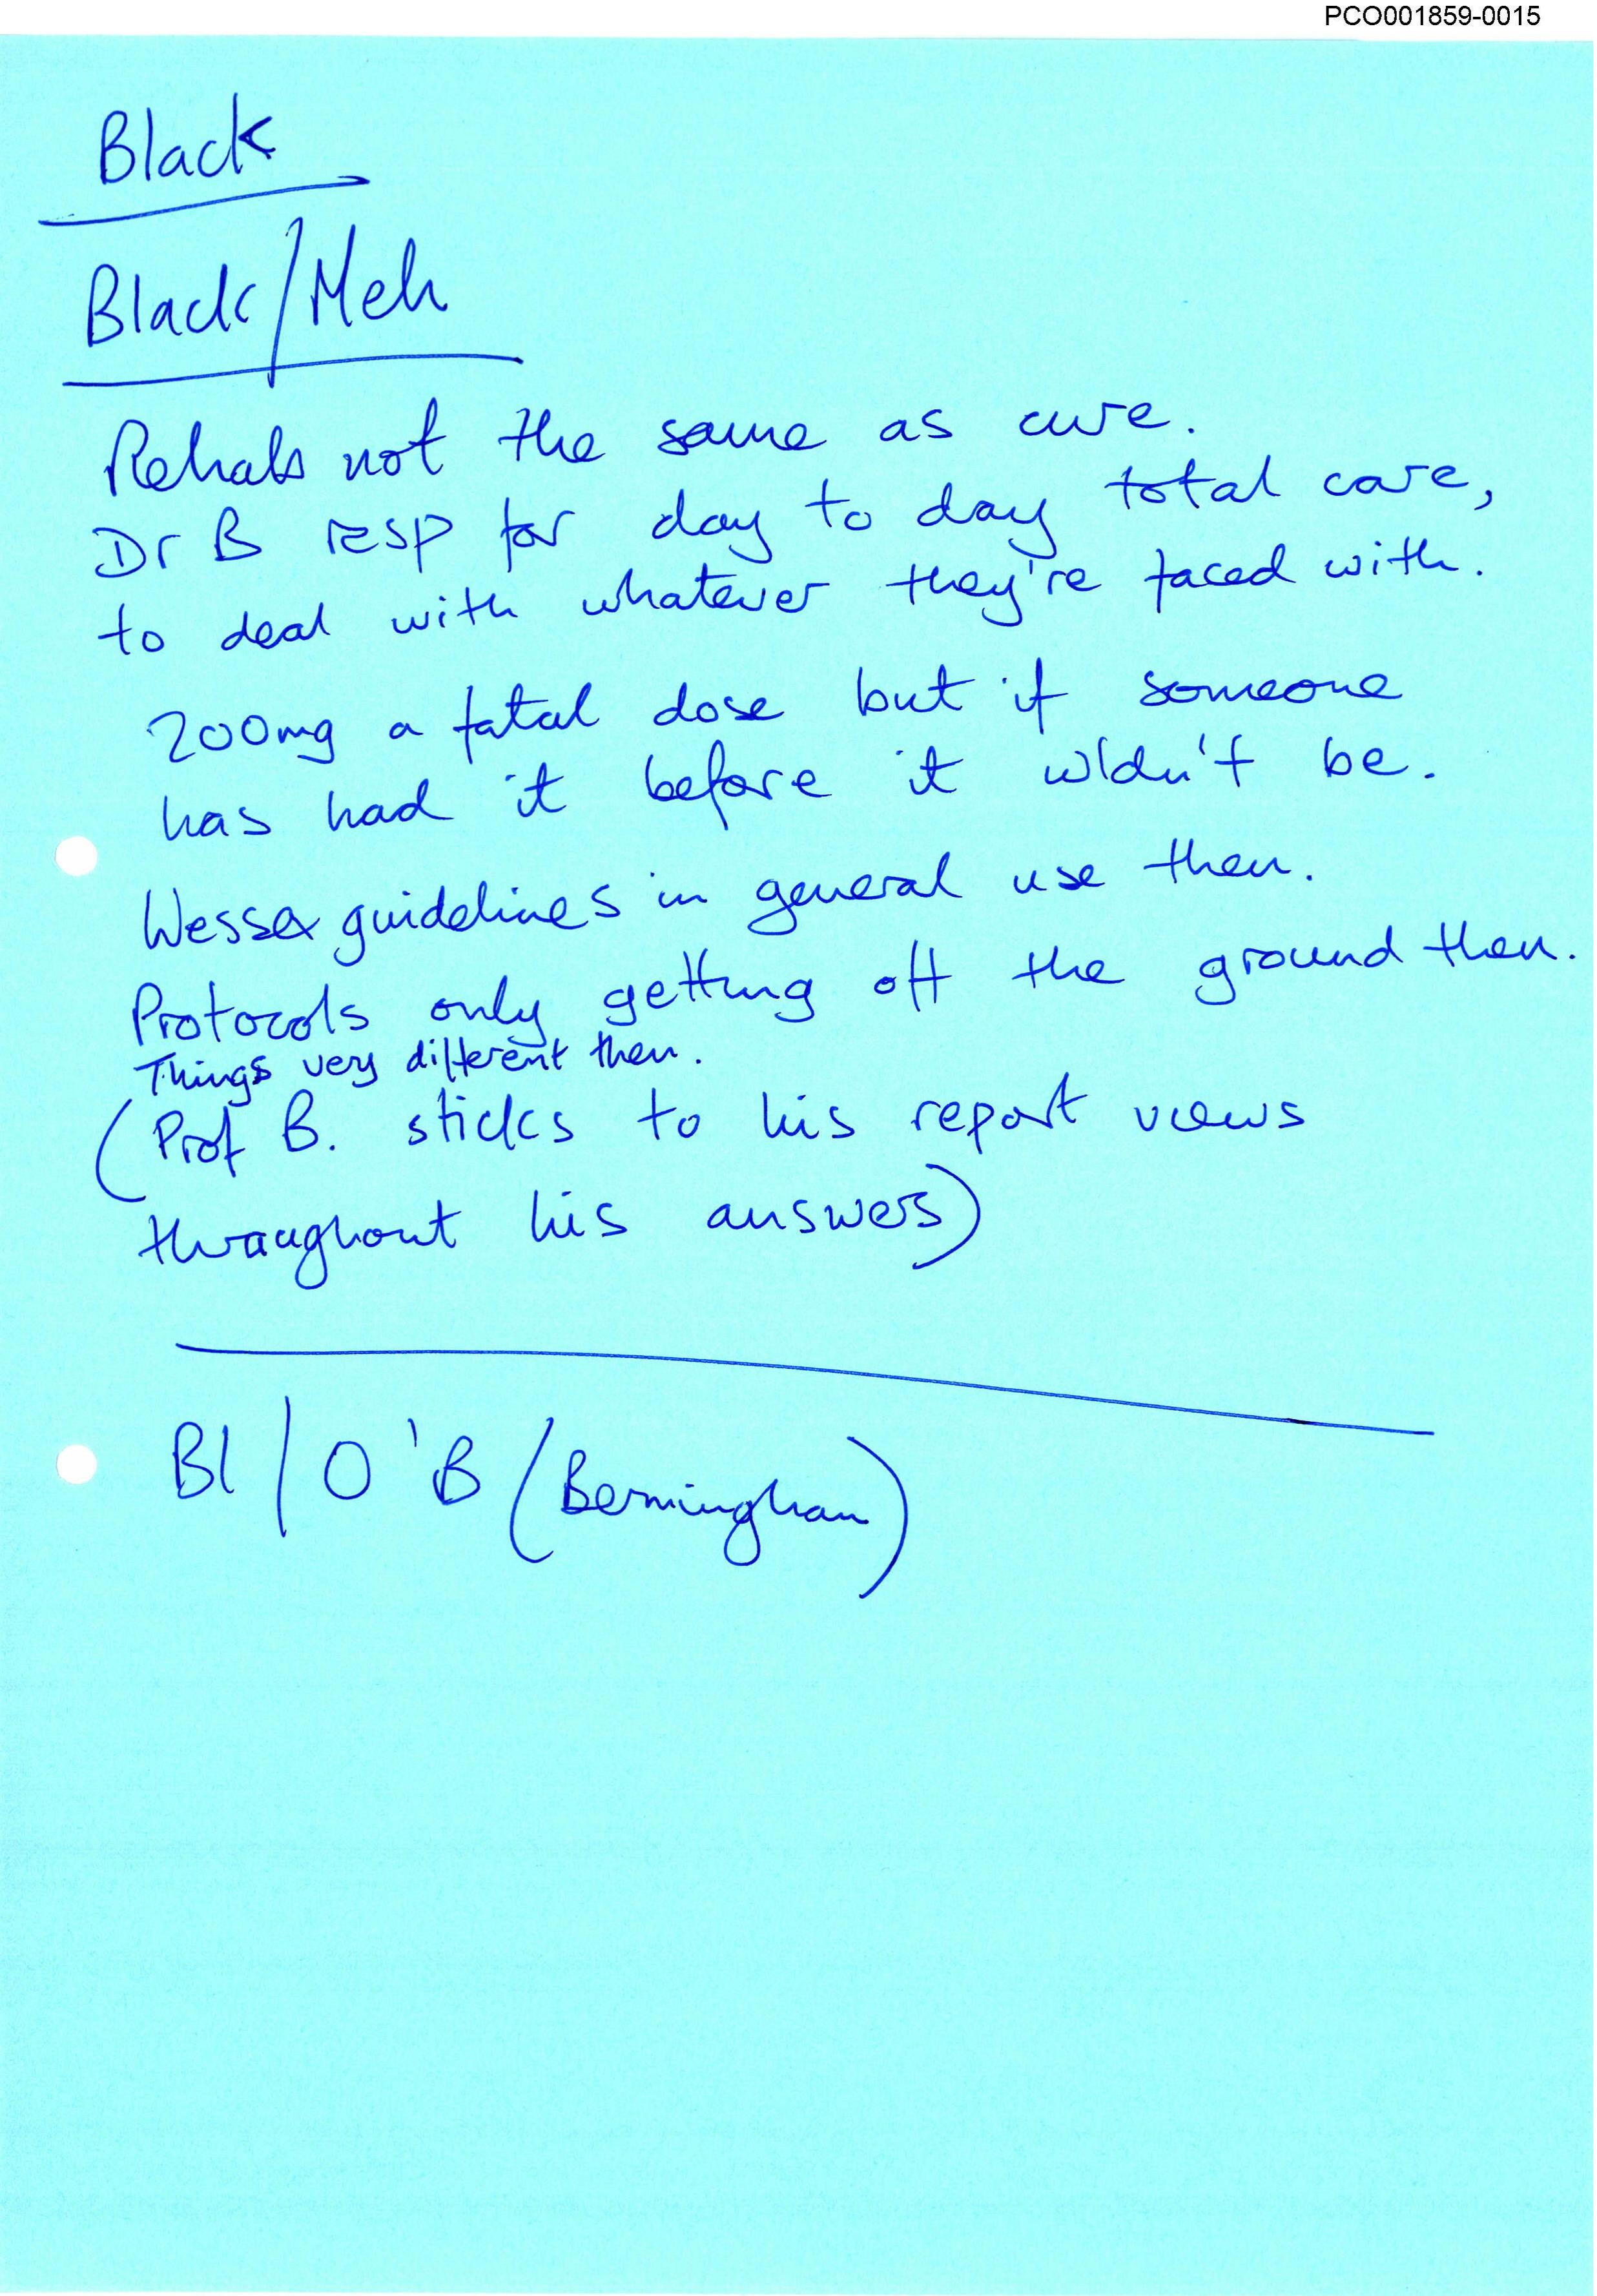 PCO001859-0015
Black
Black/Meh
Rehab not the same as cure.
Dr B resp for day to day total care,
to deal with whatever they're faced with.
200mg a fatal dose but if someone
has had it before it wldn't be.
Wessex guidelines in general use then.
Protocols only getting off the ground then.
Things very different then.
(Prof B. sticks to his report views
throughout his answers)
Bl/O'B (Bermingham)